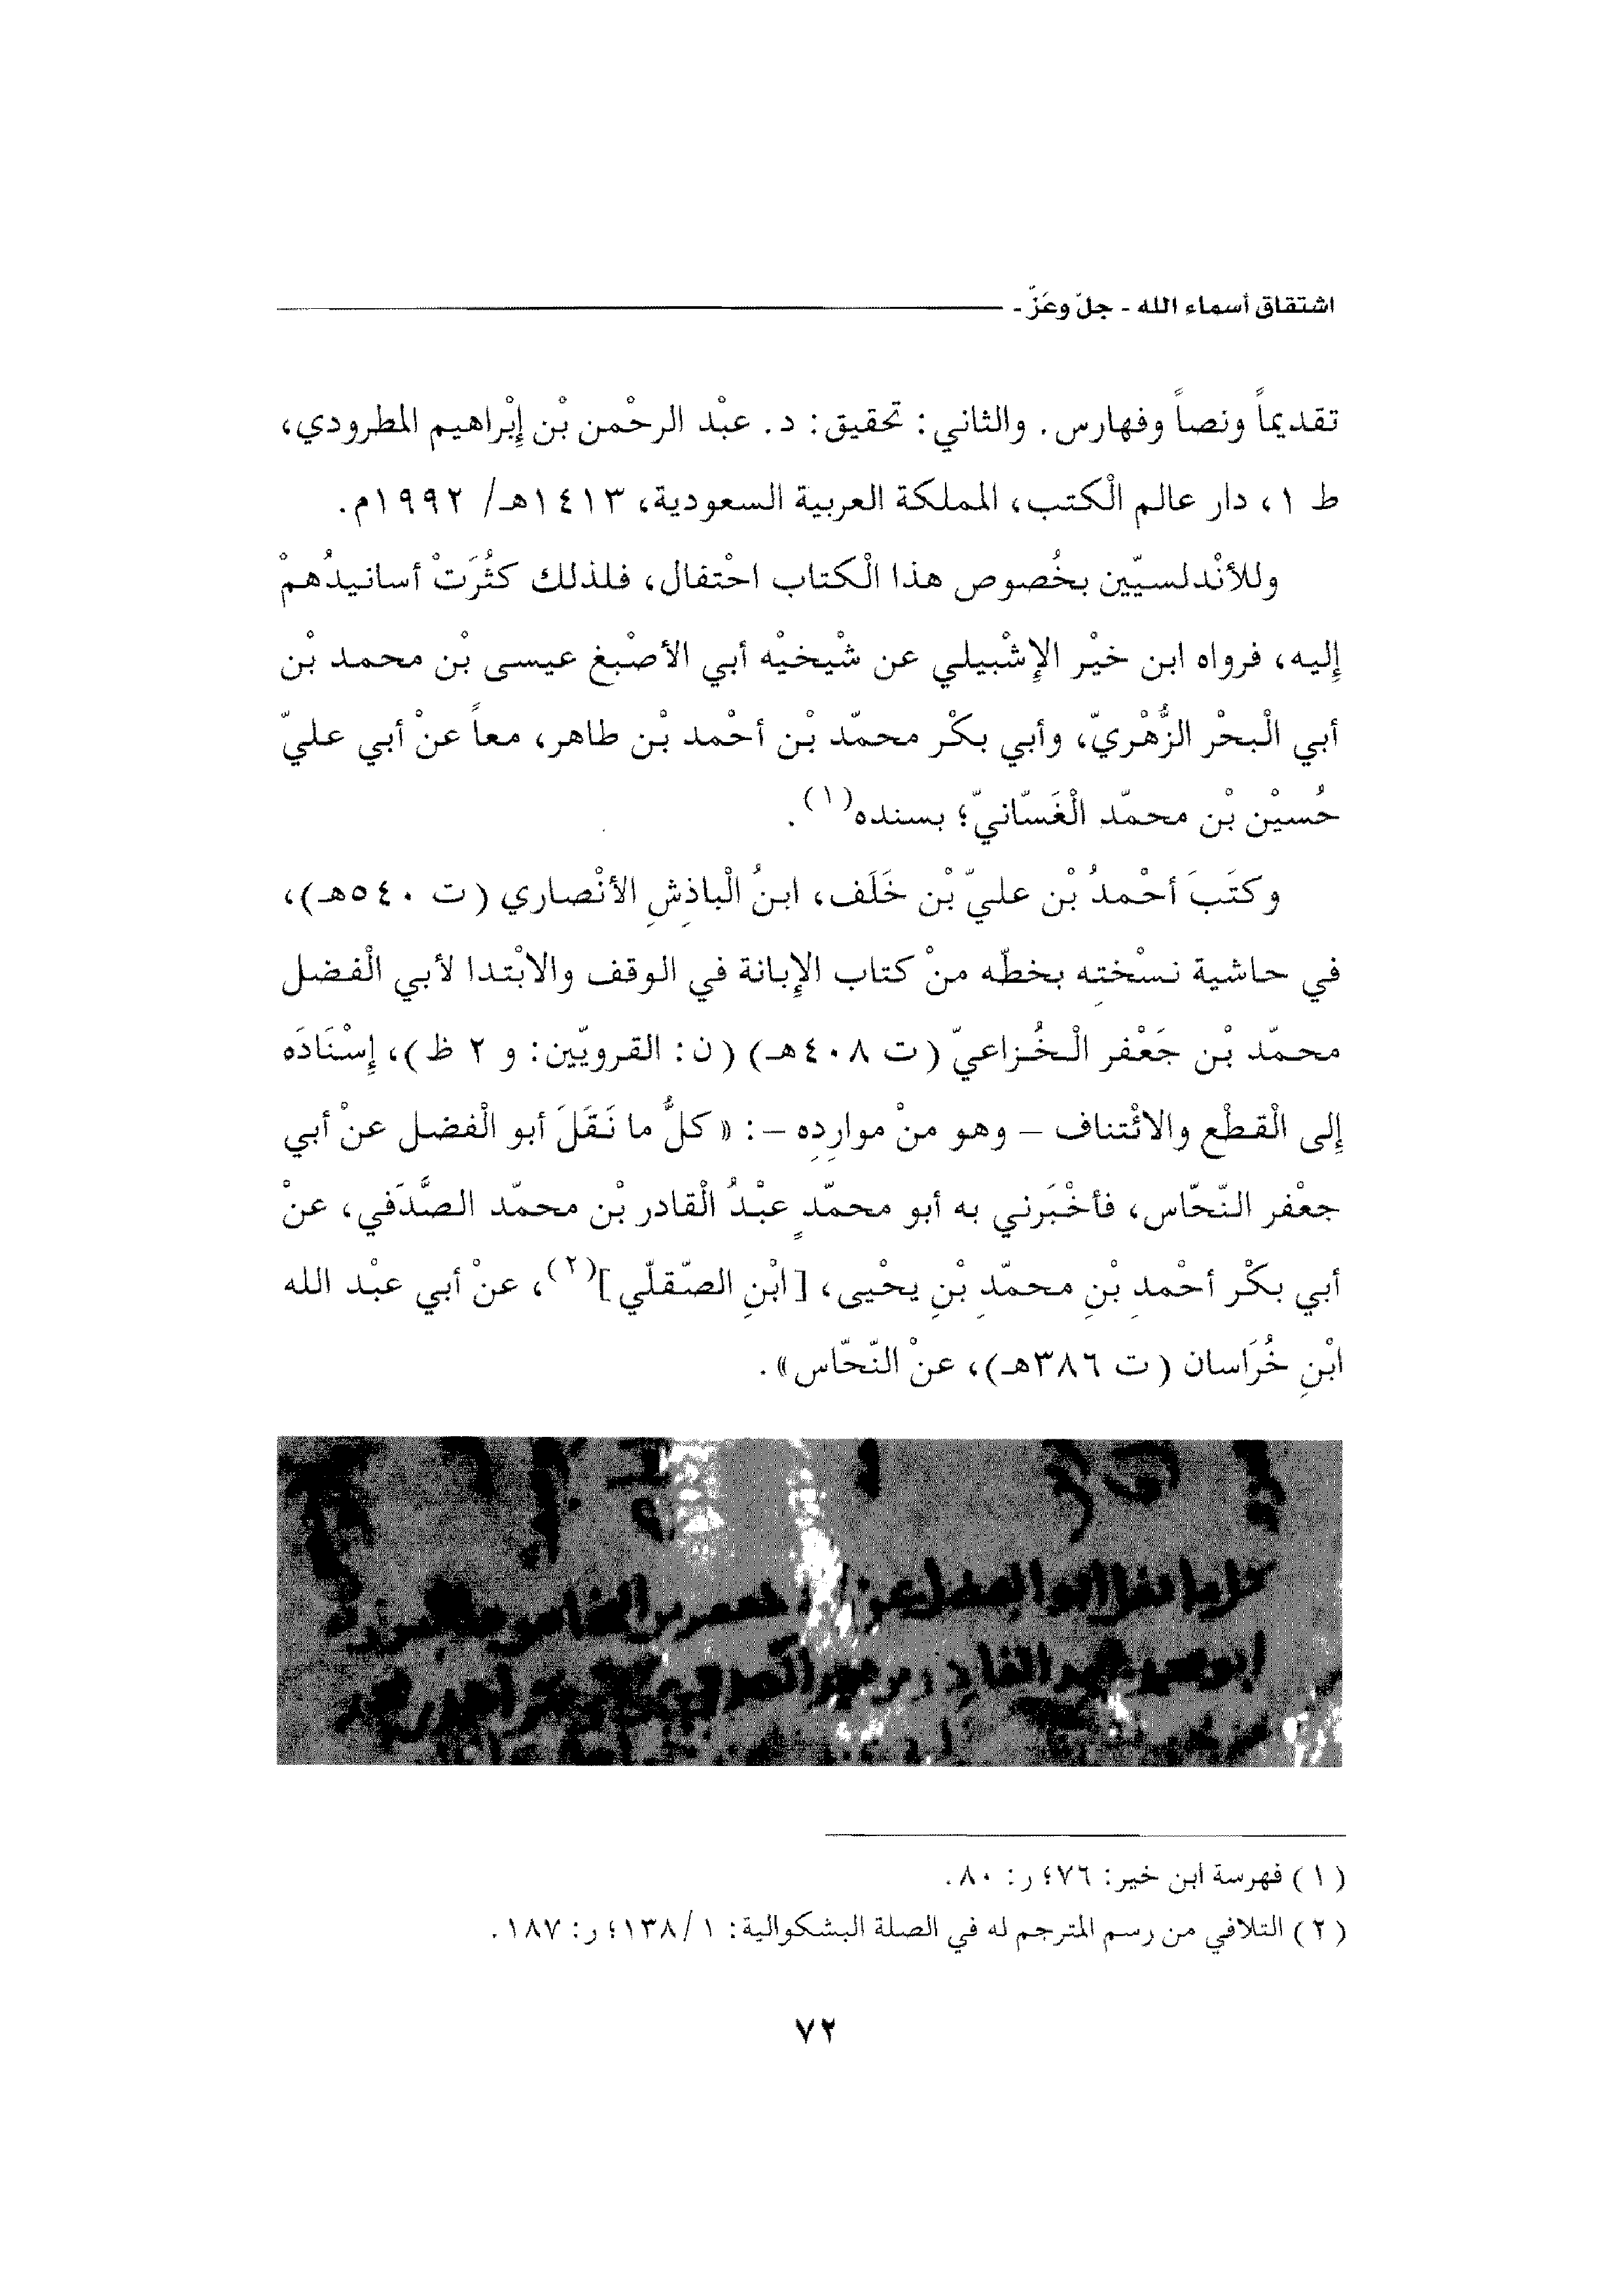 اشتقاق أسماء الله - جلّ وعَزّ -
تقديماً ونصاً وفهارس. والثاني: تحقيق: د. عبْد الرحْمن بْن إبْراهيم المطرودي،
ط ١، دار عالم الْكتب، المملكة العربية السعودية، ١٤١٣هـ/ ١٩٩٢م.
وللأنْدلسيّين بخُصوص هذا الْكتاب احْتفال، فلذلك كثُرَتْ أسانيدُهمْ
إليه، فرواه ابن خيْر الإشْبيلي عن شيْخيْه أبي الأصْبغ عيسى بْن محمد بْن
أبي الْبحْر الزُّهْريّ، وأبي بكْر محمّد بْن أحْمد بْن طاهر، معاً عنْ أبي عليّ
حُسيْن بْن محمّد الْغَسّانيّ؛ بسنده(١).
وكتَبَ أحْمدُ بْن عليّ بْن خَلَف، ابنُ الْباذِشِ الأنْصاري (ت ٥٤٠هـ)،
في حاشية نسْختِه بخطّه منْ كتاب الإبانة في الوقف والابْتدا لأبي الْفضل
محمّد بْن جَعْفر الْخُزاعيّ (ت ٤٠٨هـ) (ن: القرويّين: و ٢ ظ)، إسْنَادَه
إلى الْقطْع والائْتناف – وهو منْ موارِدِه –: «كلُّ ما نَقَلَ أبو الْفضل عنْ أبي
جعْفر النّحّاس، فأخْبَرني به أبو محمّدٍ عبْدُ الْقادر بْن محمّد الصَّدَفي، عنْ
أبي بكْر أحْمدِ بْنِ محمّدِ بْنِ يحْيى، [ابْنِ الصّقلّي](٢)، عنْ أبي عبْد الله
ابْنِ خُرَاسان (ت ٣٨٦هـ)، عنْ النّحّاس».
(١) فهرسة ابن خير: ٧٦؛ ر: ٨٠.
(٢) التلافي من رسم المترجم له في الصلة البشكوالية: ١/ ١٣٨؛ ر: ١٨٧.
٧٢